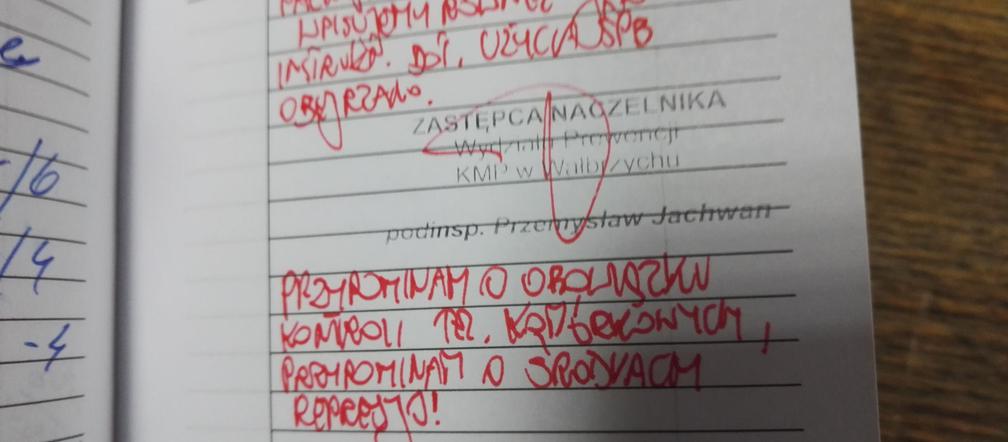 WPISUJEMY
INSTRUKC. DOT. UŻYCIA ŚPB
ZASTĘPCA NACZELNIKA
Wydziału Prewencji
KMP w Wałbrzychu
podinsp. Przemysław Jachwan
PRZYPOMINAM O OBOWIĄZKU
KONTROLI TEL. KOMÓRKOWYCH,
PRZYPOMINAM O ŚRODKACH
REPRESJI!
/6
/4
-4